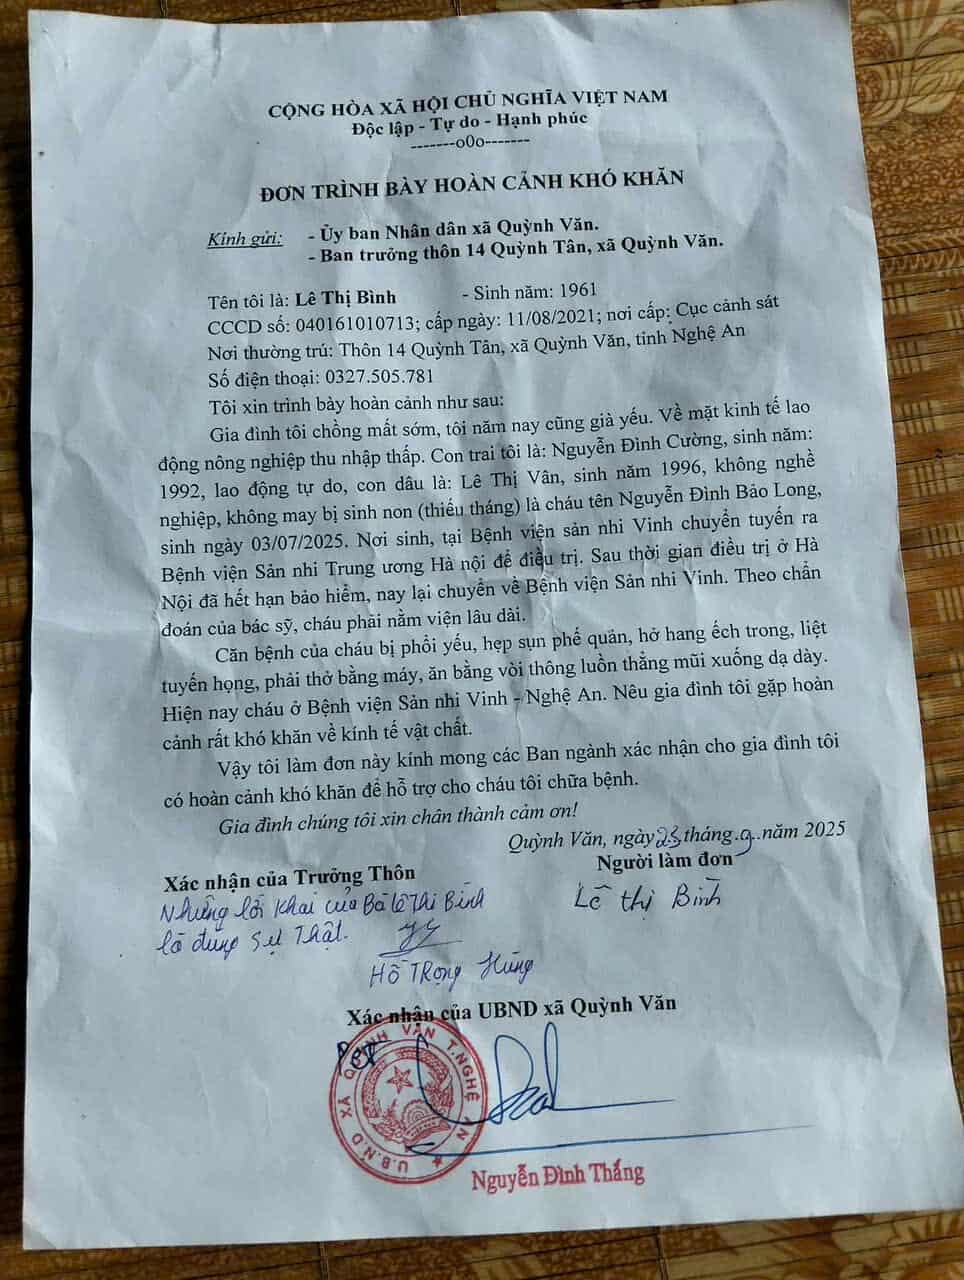 CỘNG HÒA XÃ HỘI CHỦ NGHĨA VIỆT NAM
Độc lập - Tự do - Hạnh phúc
-------o0o-------
ĐƠN TRÌNH BÀY HOÀN CẢNH KHÓ KHĂN
Kính gửi: - Ủy ban Nhân dân xã Quỳnh Văn.
- Ban trưởng thôn 14 Quỳnh Tân, xã Quỳnh Văn.
Tên tôi là: Lê Thị Bình - Sinh năm: 1961
CCCD số: 040161010713; cấp ngày: 11/08/2021; nơi cấp: Cục cảnh sát
Nơi thường trú: Thôn 14 Quỳnh Tân, xã Quỳnh Văn, tỉnh Nghệ An
Số điện thoại: 0327.505.781
Tôi xin trình bày hoàn cảnh như sau:
Gia đình tôi chồng mất sớm, tôi năm nay cũng già yếu. Về mặt kinh tế lao
động nông nghiệp thu nhập thấp. Con trai tôi là: Nguyễn Đình Cường, sinh năm:
1992, lao động tự do, con dâu là: Lê Thị Vân, sinh năm 1996, không nghề
nghiệp, không may bị sinh non (thiếu tháng) là cháu tên Nguyễn Đình Bảo Long,
sinh ngày 03/07/2025. Nơi sinh, tại Bệnh viện sản nhi Vinh chuyển tuyến ra
Bệnh viện Sản nhi Trung ương Hà nội để điều trị. Sau thời gian điều trị ở Hà
Nội đã hết hạn bảo hiểm, nay lại chuyển về Bệnh viện Sản nhi Vinh. Theo chẩn
đoán của bác sỹ, cháu phải nằm viện lâu dài.
Căn bệnh của cháu bị phổi yếu, hẹp sụn phế quản, hở hang ếch trong, liệt
tuyến họng, phải thở bằng máy, ăn bằng vòi thông luồn thẳng mũi xuống dạ dày.
Hiện nay cháu ở Bệnh viện Sản nhi Vinh - Nghệ An. Nêu gia đình tôi gặp hoàn
cảnh rất khó khăn về kính tế vật chất.
Vậy tôi làm đơn này kính mong các Ban ngành xác nhận cho gia đình tôi
có hoàn cảnh khó khăn để hỗ trợ cho cháu tôi chữa bệnh.
Gia đình chúng tôi xin chân thành cảm ơn!
Quỳnh Văn, ngày 23 tháng 9 năm 2025
Xác nhận của Trưởng Thôn Người làm đơn
Những lời khai của Bà Lê Thị Bình Lê thị Bình
là đúng Sự Thật.
Hồ Trọng Hùng
Xác nhận của UBND xã Quỳnh Văn
U.B.N.D XÃ QUỲNH VĂN T.NGHỆ AN
Nguyễn Đình Thắng